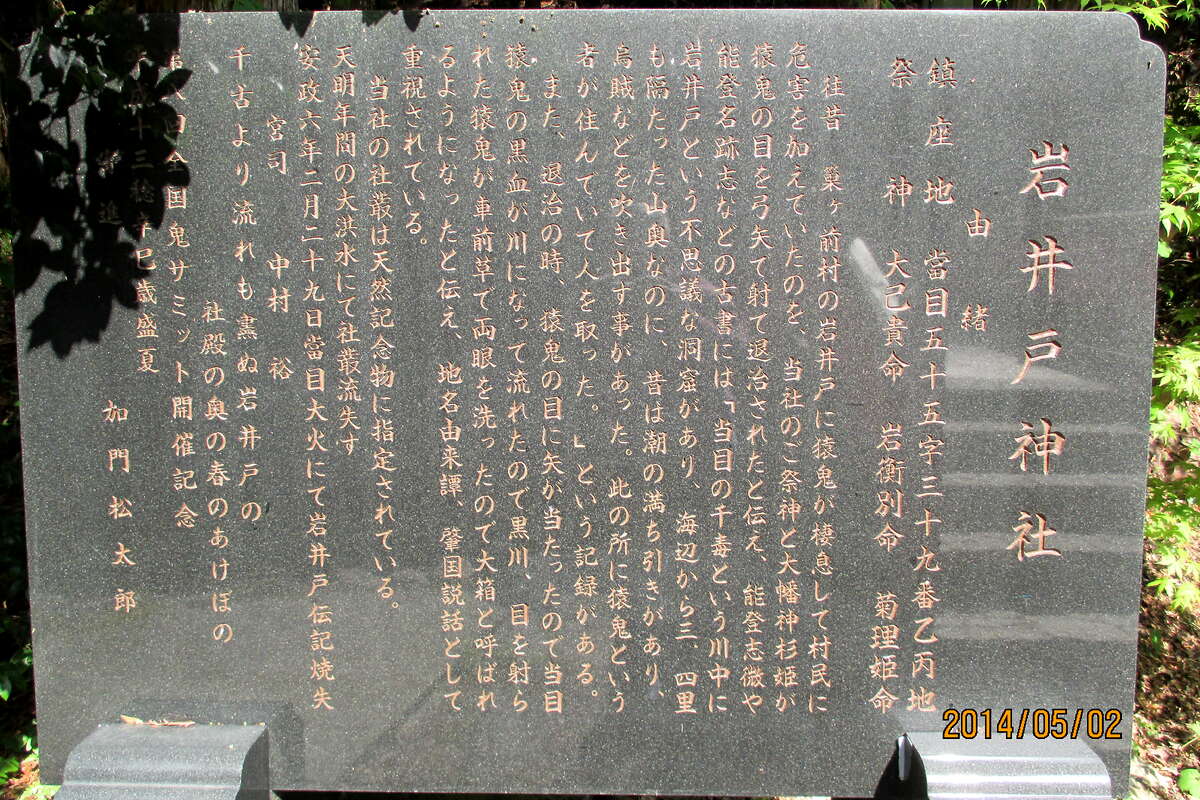 岩井戸神社
由緒
鎮座地 當目五十五字三十九番乙丙地
祭神 大己貴命 岩衝別命 菊理姫命
往昔 巣ヶ前村の岩井戸に猿鬼が棲息して村民に
危害を加えていたのを、当社のご祭神と大幡神杉姫が
猿鬼の目を弓矢て射て退治されたと伝え、能登志徴や
能登名跡志などの古書には、「当目の千毒という川中に
岩井戸という不思議な洞窟があり、海辺から三、四里
も隔たった山奥なのに、昔は潮の満ち引きがあり、
烏賊などを吹き出す事があった。此の所に猿鬼という
者が住んでいて人を取った。」という記録がある。
また、退治の時、猿鬼の目に矢が当たったので当目
猿鬼の黒血が川になって流れたので黒川、目を射ら
れた猿鬼が車前草で両眼を洗ったので大箱と呼ばれ
るようになったと伝え、地名由来譚、肇国説話として
重視されている。
当社の社叢は天然記念物に指定されている。
天明年間の大洪水にて社叢流失す
安政六年二月二十九日當目大火にて岩井戸伝記焼失
宮司 中村 裕
千古より流れも盡ぬ岩井戸の
社殿の奥の春のあけぼの
全国鬼サミット開催記念
十三稔辛巳歳盛夏
進 加門松太郎
2014/05/02